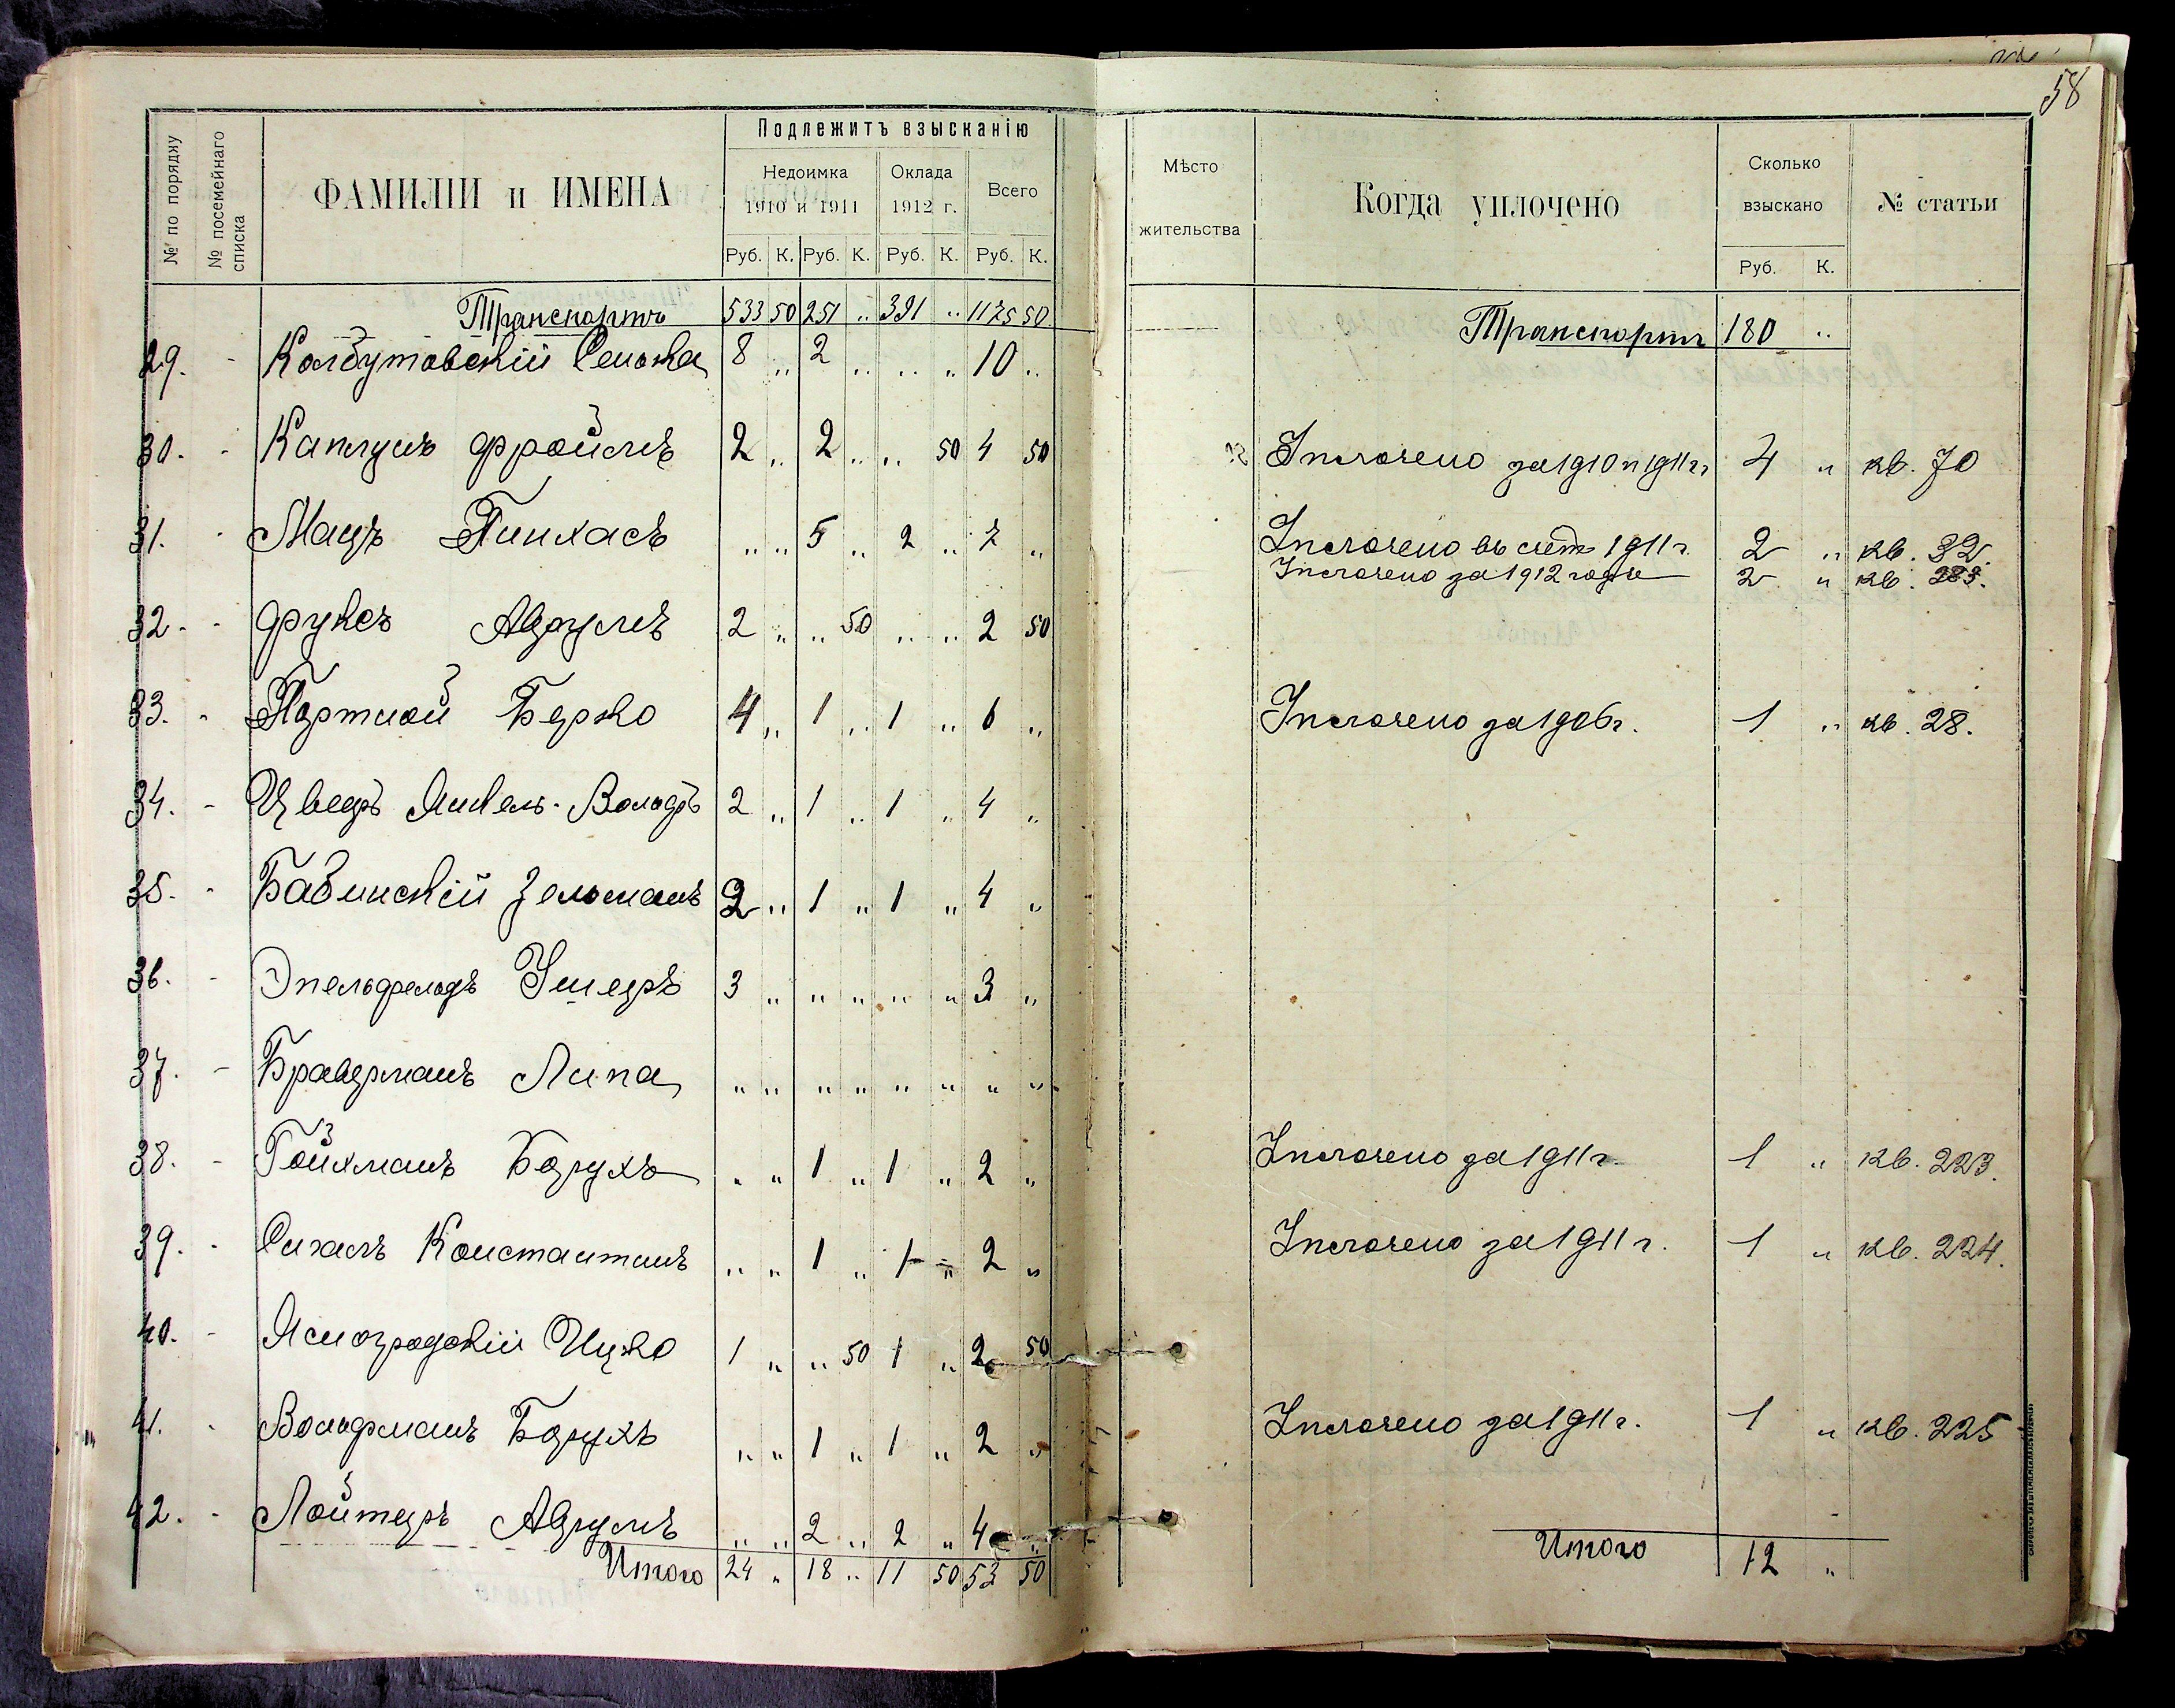 58
№ по порядку
№ посемейнаго списка
ФАМИЛІИ и ИМЕНА
Подлежитъ взысканію
Недоимка
1910 и 1911
Оклада
1912 г.
Всего
Руб. К. Руб. К. Руб. К. Руб. К.
Мѣсто
жительства
Когда уплочено
Сколько
взыскано
Руб. К.
№ статьи
Транспортъ 533 50 251 „ 391 „ 1175 50 Транспортъ 180 „
29. - Колбутовскій 8 „ 2 „ „ „ 10 „
30. - Капլунъ Фроймъ 2 „ 2 „ „ 50 4 50 Уплочено за 1910 и 1911 г. 4 „ кв. 70
31. - Мацъ Пинхасъ „ „ 5 „ 2 „ 7 „ Уплочено въ счетъ 1911 г. 2 „ кв. 32.
Уплочено за 1912 годъ 2 „ кв. 283.
32. - Фуксъ Аврумъ 2 „ „ 50 „ „ 2 50
33. - Портной Берко 4 „ 1 „ 1 „ 6 „ Уплочено за 1906 г. 1 „ кв. 28.
34. - Янкель-Вольфъ 2 „ 1 „ 1 „ 4 „
35. - Бабинскій Зельманъ 2 „ 1 „ 1 „ 4 „
36. - Эпельфельдъ Ушеръ 3 „ „ „ „ „ 3 „
37. - Браверманъ Липа „ „ „ „ „ „ „ „
38. - Гойхманъ Борухъ „ „ 1 „ 1 „ 2 „ Уплочено за 1911 г. 1 „ кв. 223.
39. - Сигалъ Константинъ „ „ 1 „ 1 „ 2 „ Уплочено за 1911 г. 1 „ кв. 224.
40. - Ясногродскій Ицко 1 „ „ 50 1 „ 2 50
41. - Вольфманъ Борухъ „ „ 1 „ 1 „ 2 „ Уплочено за 1911 г. 1 „ кв. 225
42. - Лойтеръ Аврумъ „ „ 2 „ 2 „ 4 „
Итого 24 „ 18 „ 11 50 53 50 Итого 12 „